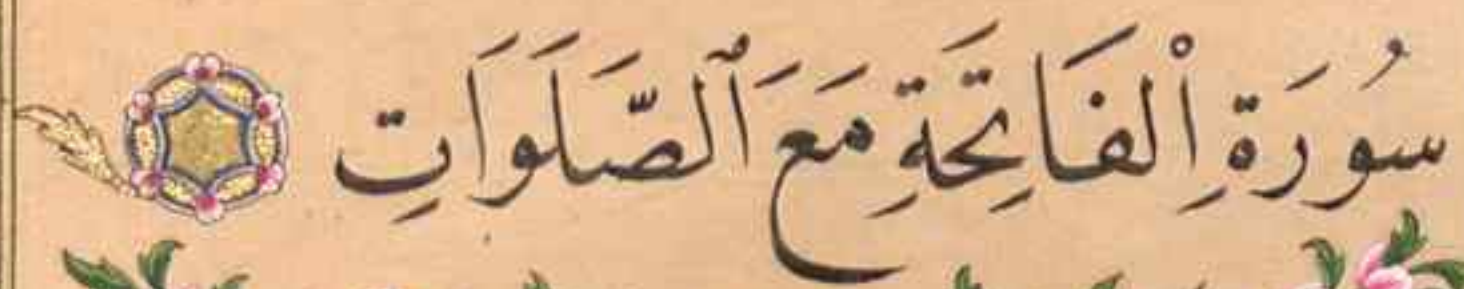 سُورَةِ اْلفَاتِحَةِ مَعَ ٱلصَّلَوَاتِ